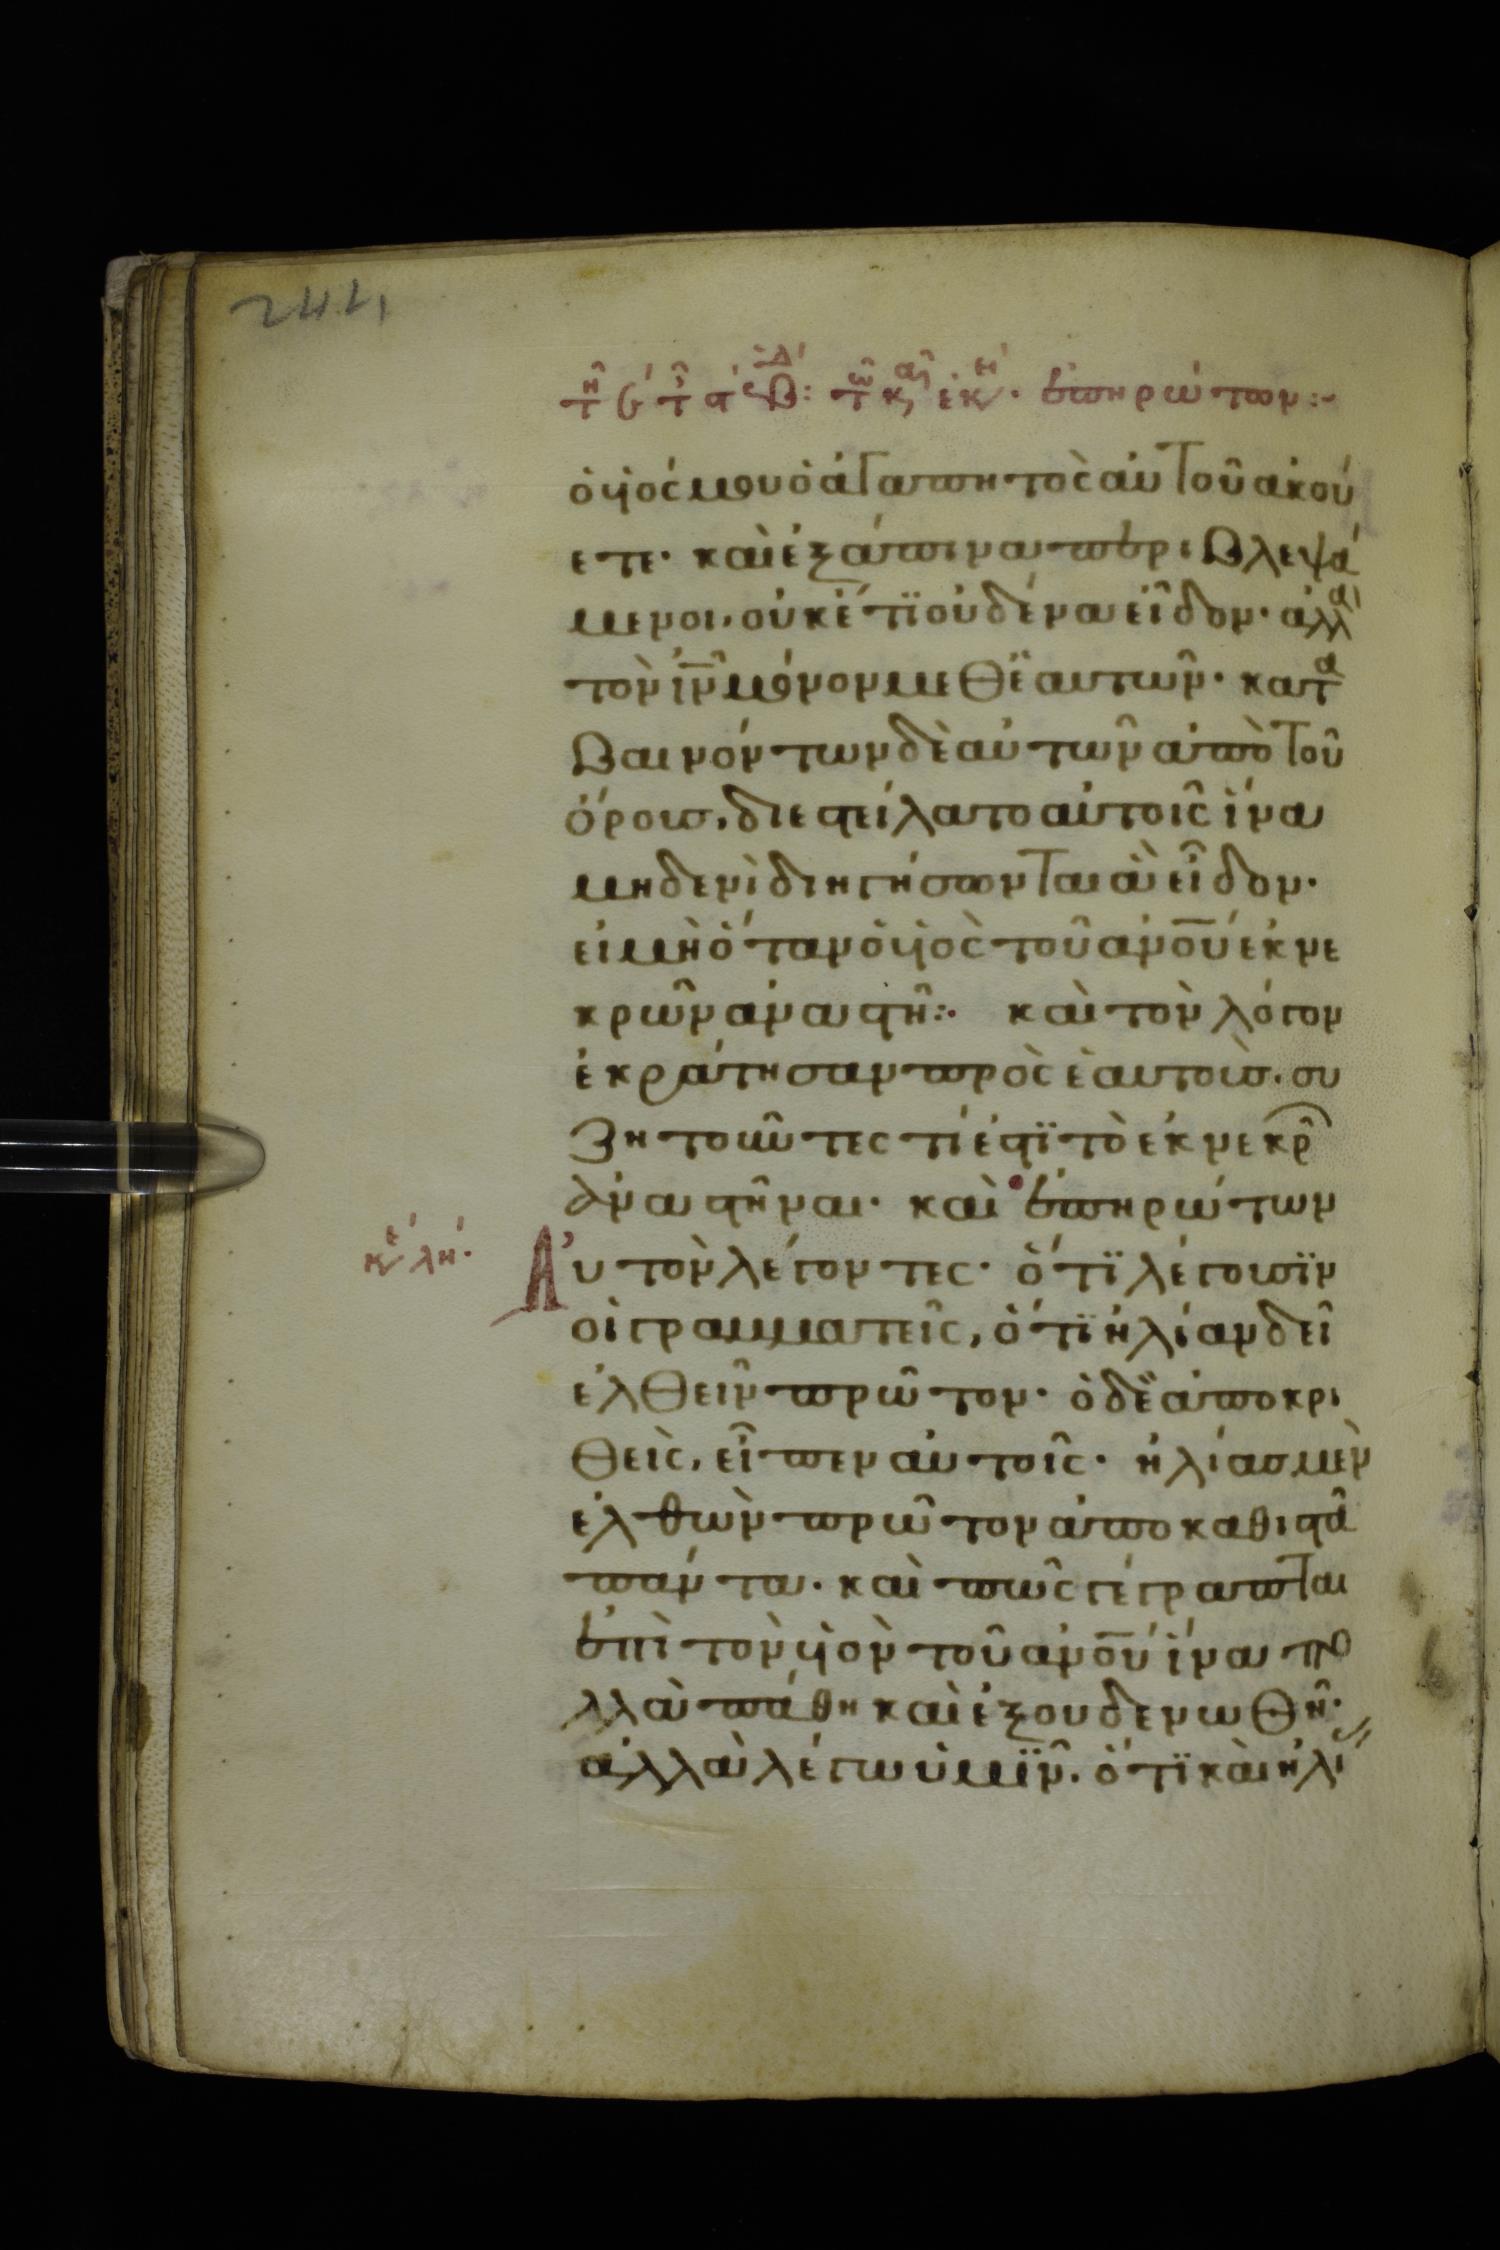 ὁ υἱός μου ὁ ἀγαπητὸς αὐτοῦ ἀκού
ετε· καὶ ἐξάπινα περιβλεψά
μενοι, οὐκέτι οὐδένα εἶδον· ἀλλὰ
τὸν ἰν̄ μόνον μεθ ἑαυτῶν· κατα
βαινόντων δὲ αὐτῶν ἀπὸ τοῦ
ὄρους, διεστείλατο αὐτοῖς ἵνα
μηδενὶ διηγήσωνται ἃ εἶδον·
εἰ μὴ ὅταν ὁ υἱὸς τοῦ ἀν̄ου ἐκ νε
κρῶν ἀναστῆ:· καὶ τὸν λόγον
ἐκράτησαν πρὸς ἑαυτοὺς· συ
ζητοῦντες τί ἐστϊ τὸ ἐκ νεκρῶ
ἀναστῆναι· καὶ ἐπηρώτων
Αὐτὸν λέγοντες· ὅτϊ λέγουσϊν
οἱ γραμματεῖς, ὅτϊ ἠλίαν δεῖ
ἐλθεῖν πρῶτον· ὁ δὲ ἀποκρι
θεὶς, εἶπεν αὐτοῖς· ἠλίας μὲν
ἐλθὼν πρῶτον ἀποκαθιστᾶ
πάντα· καὶ πῶς γέγραπται
ἐπὶ τὸν υἱὸν τοῦ ἀν̄ου ἵνα πο
λλὰ πάθη καὶ ἐξουδενωθῆ·
ἀλλὰ λέγω ὑμῖν· ὅτϊ καὶ ἠλί